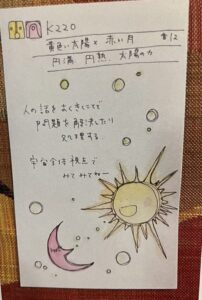 K220
黄色い太陽と赤い月 音12
円満 円熟 太陽の力
人の話をよくきくことで
問題を解決したり
処理する
宇宙全体視点で
みてみてねー